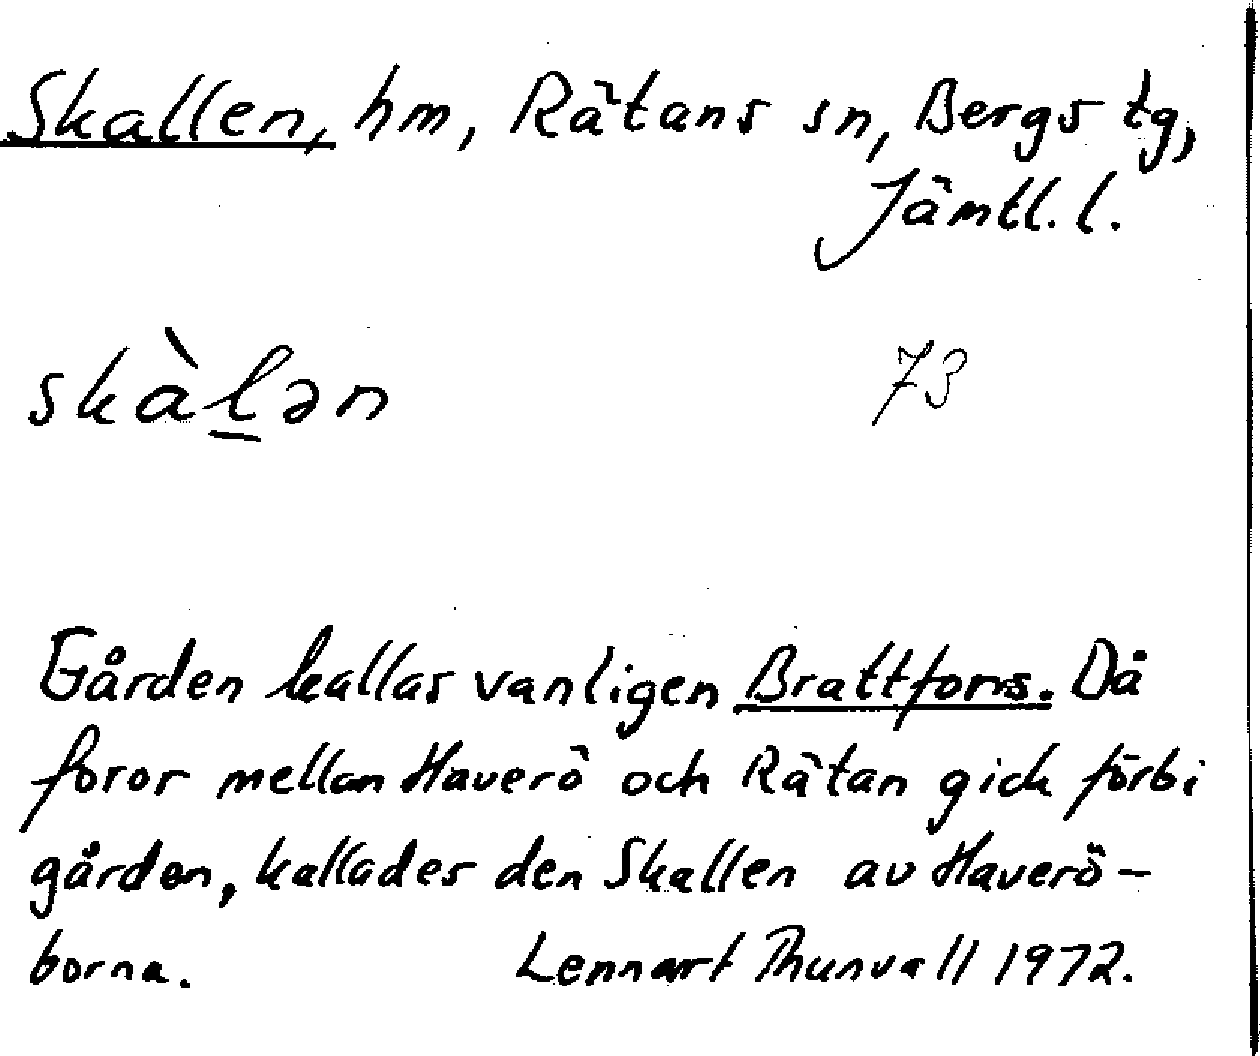 Skallen, hm, Rätans sn, Bergs tg,
Jämtl. l.
skàl̲ən 73
Gården kallas vanligen Brattfors. Då
foror mellan Haverö och Rätan gick förbi
gården, kallades den Skallen av Haverö-
borna. Lennart Thunvall 1972.